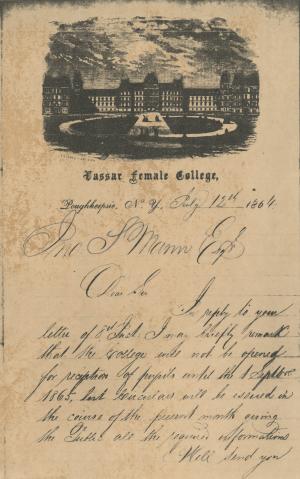 Vassar Female College,
Poughkeepsie, N. Y. July 12th 1864
Jno S Mann Esq
Dear Sir
In reply to your
letter of 8th Inst. I may briefly remark
that the College will not be opened
for reception of pupils until the 1 Sept
1865, but Circulars will be issued in
the course of the present month giving
the Public all the required information
Will send you